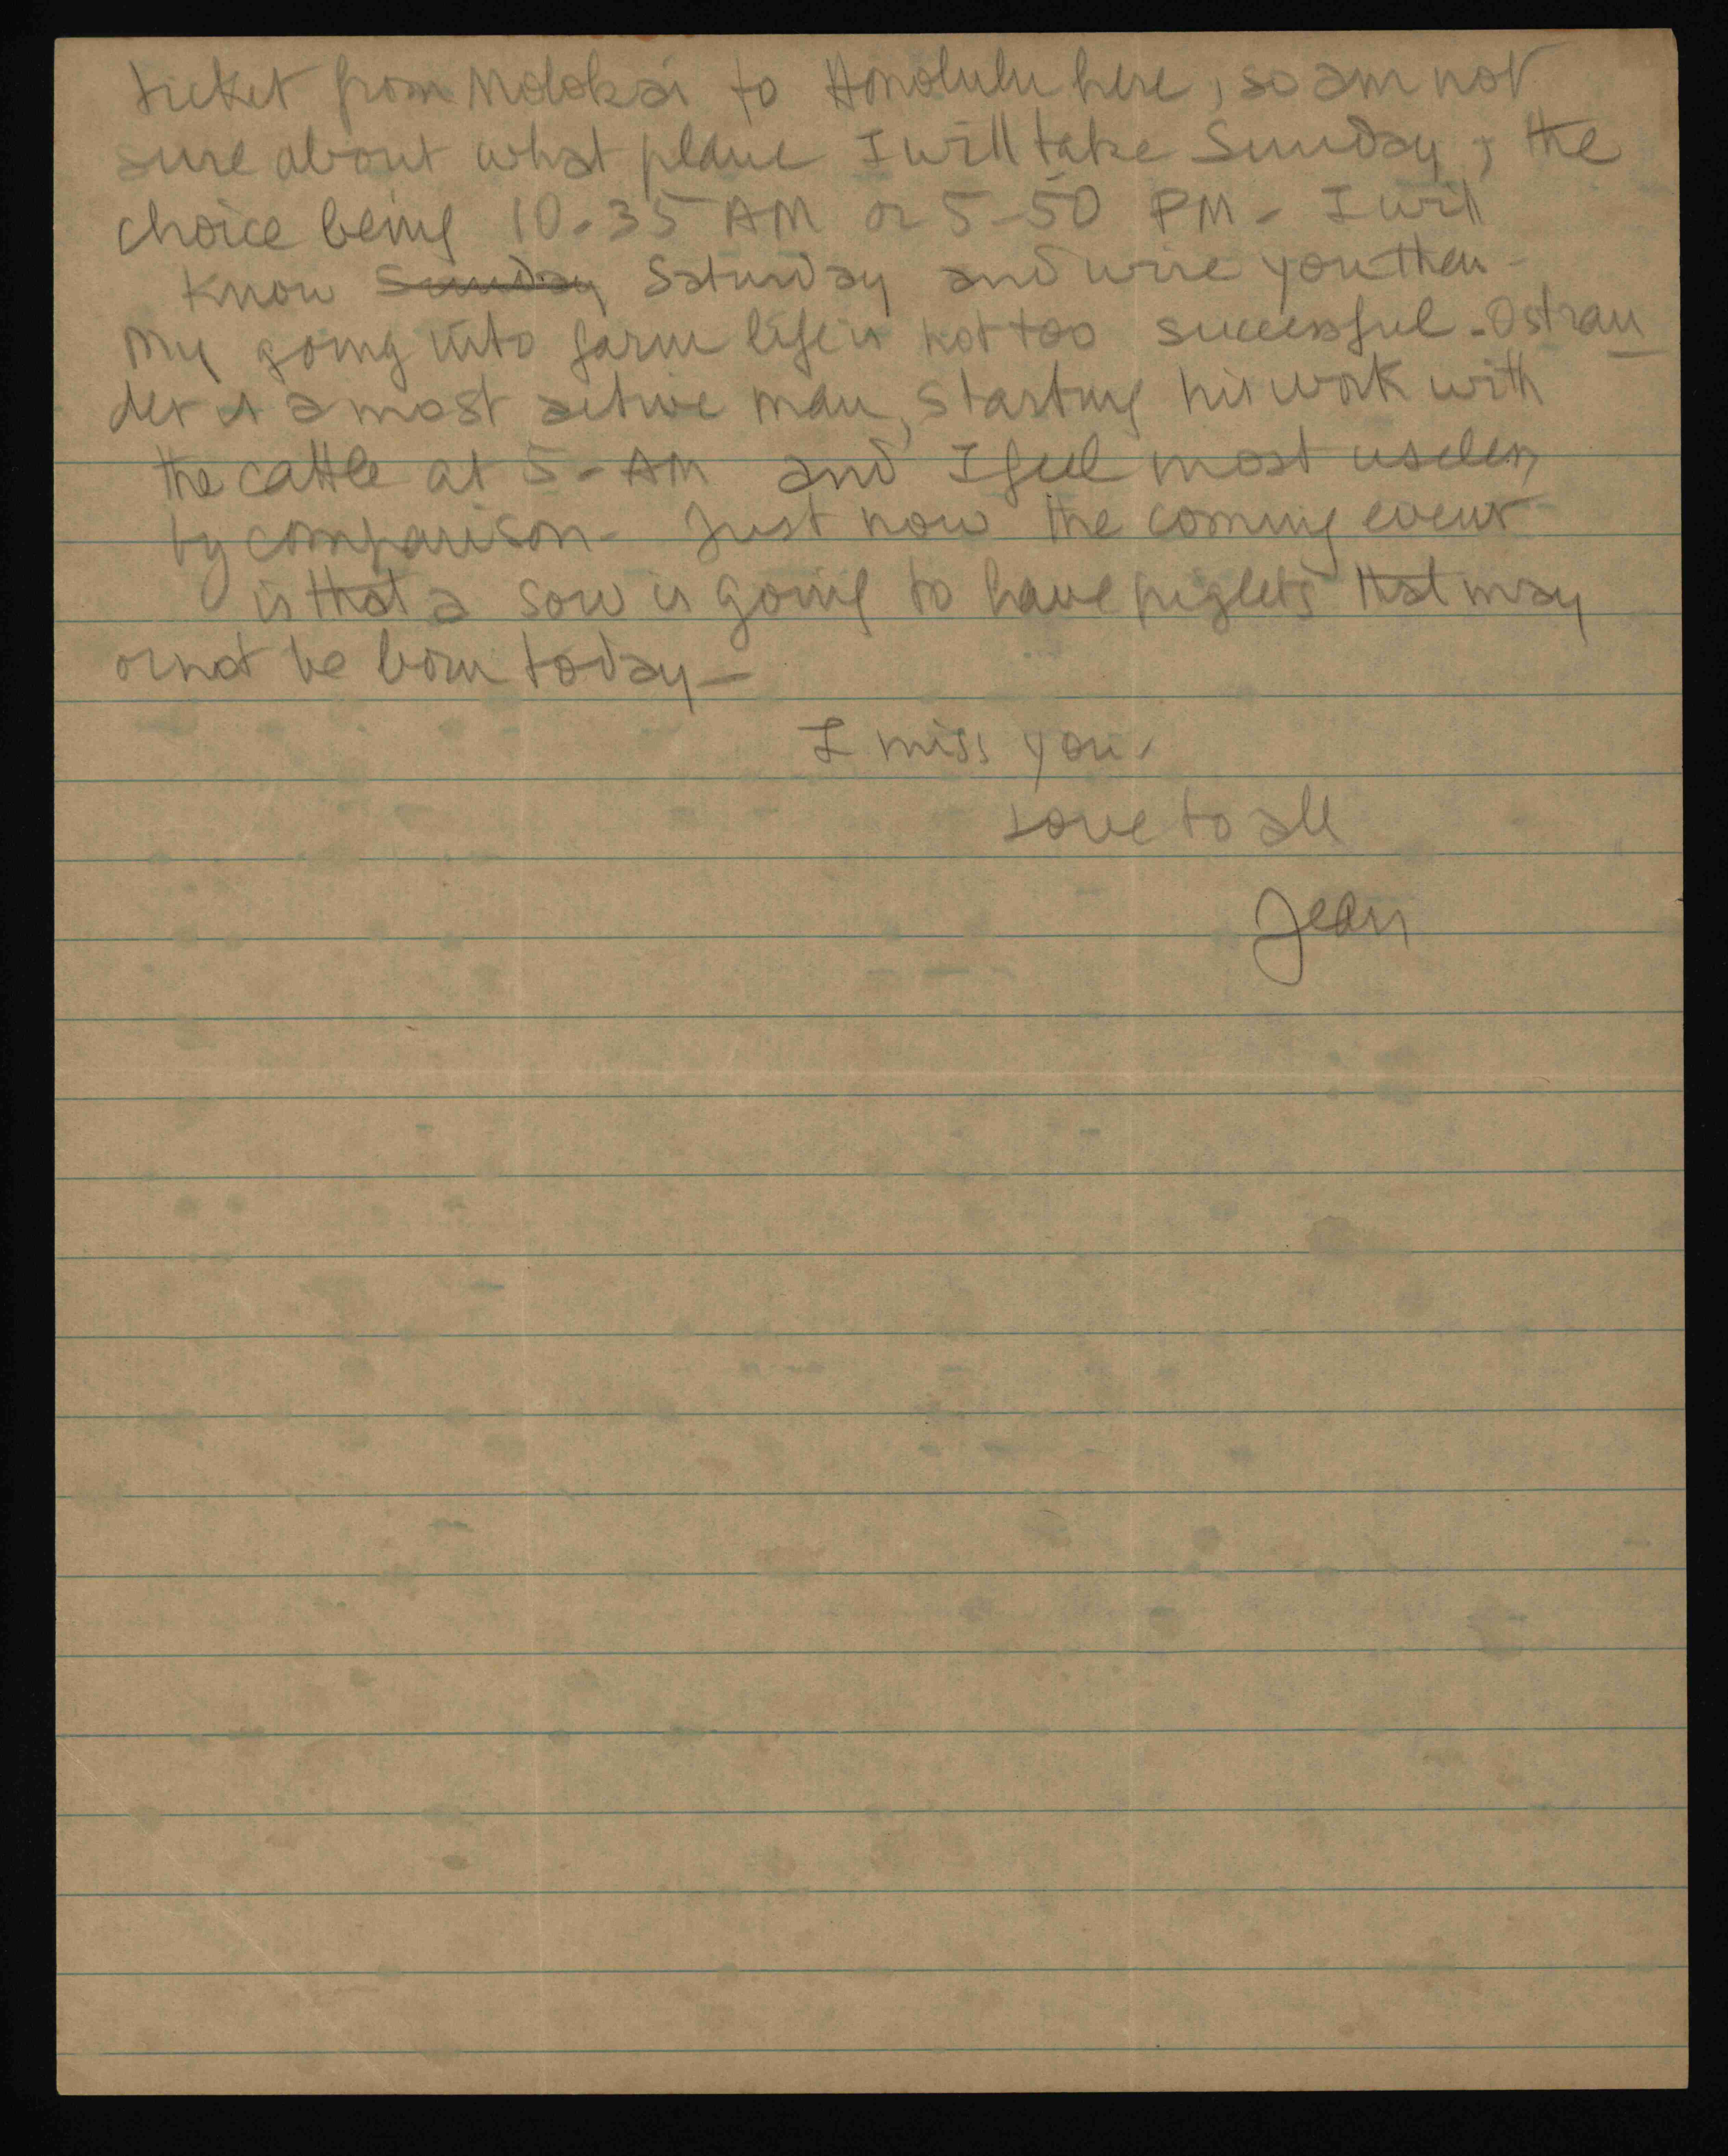 ticket from Molokai to Honolulu here, so am not
sure about what plane I will take Sunday, the
choice being 10-35 AM or 5-50 PM - I will
know ~~Sunday~~ Saturday and wire you then -
My going into farm life is not too successful - Ostran
der is a most active man, starting his work with
the cattle at 5 - AM and I feel most useless
by comparison - Just now the coming event
is that a sow is going to have piglets that may
or not be born today —
I miss you -
Love to all
Jean